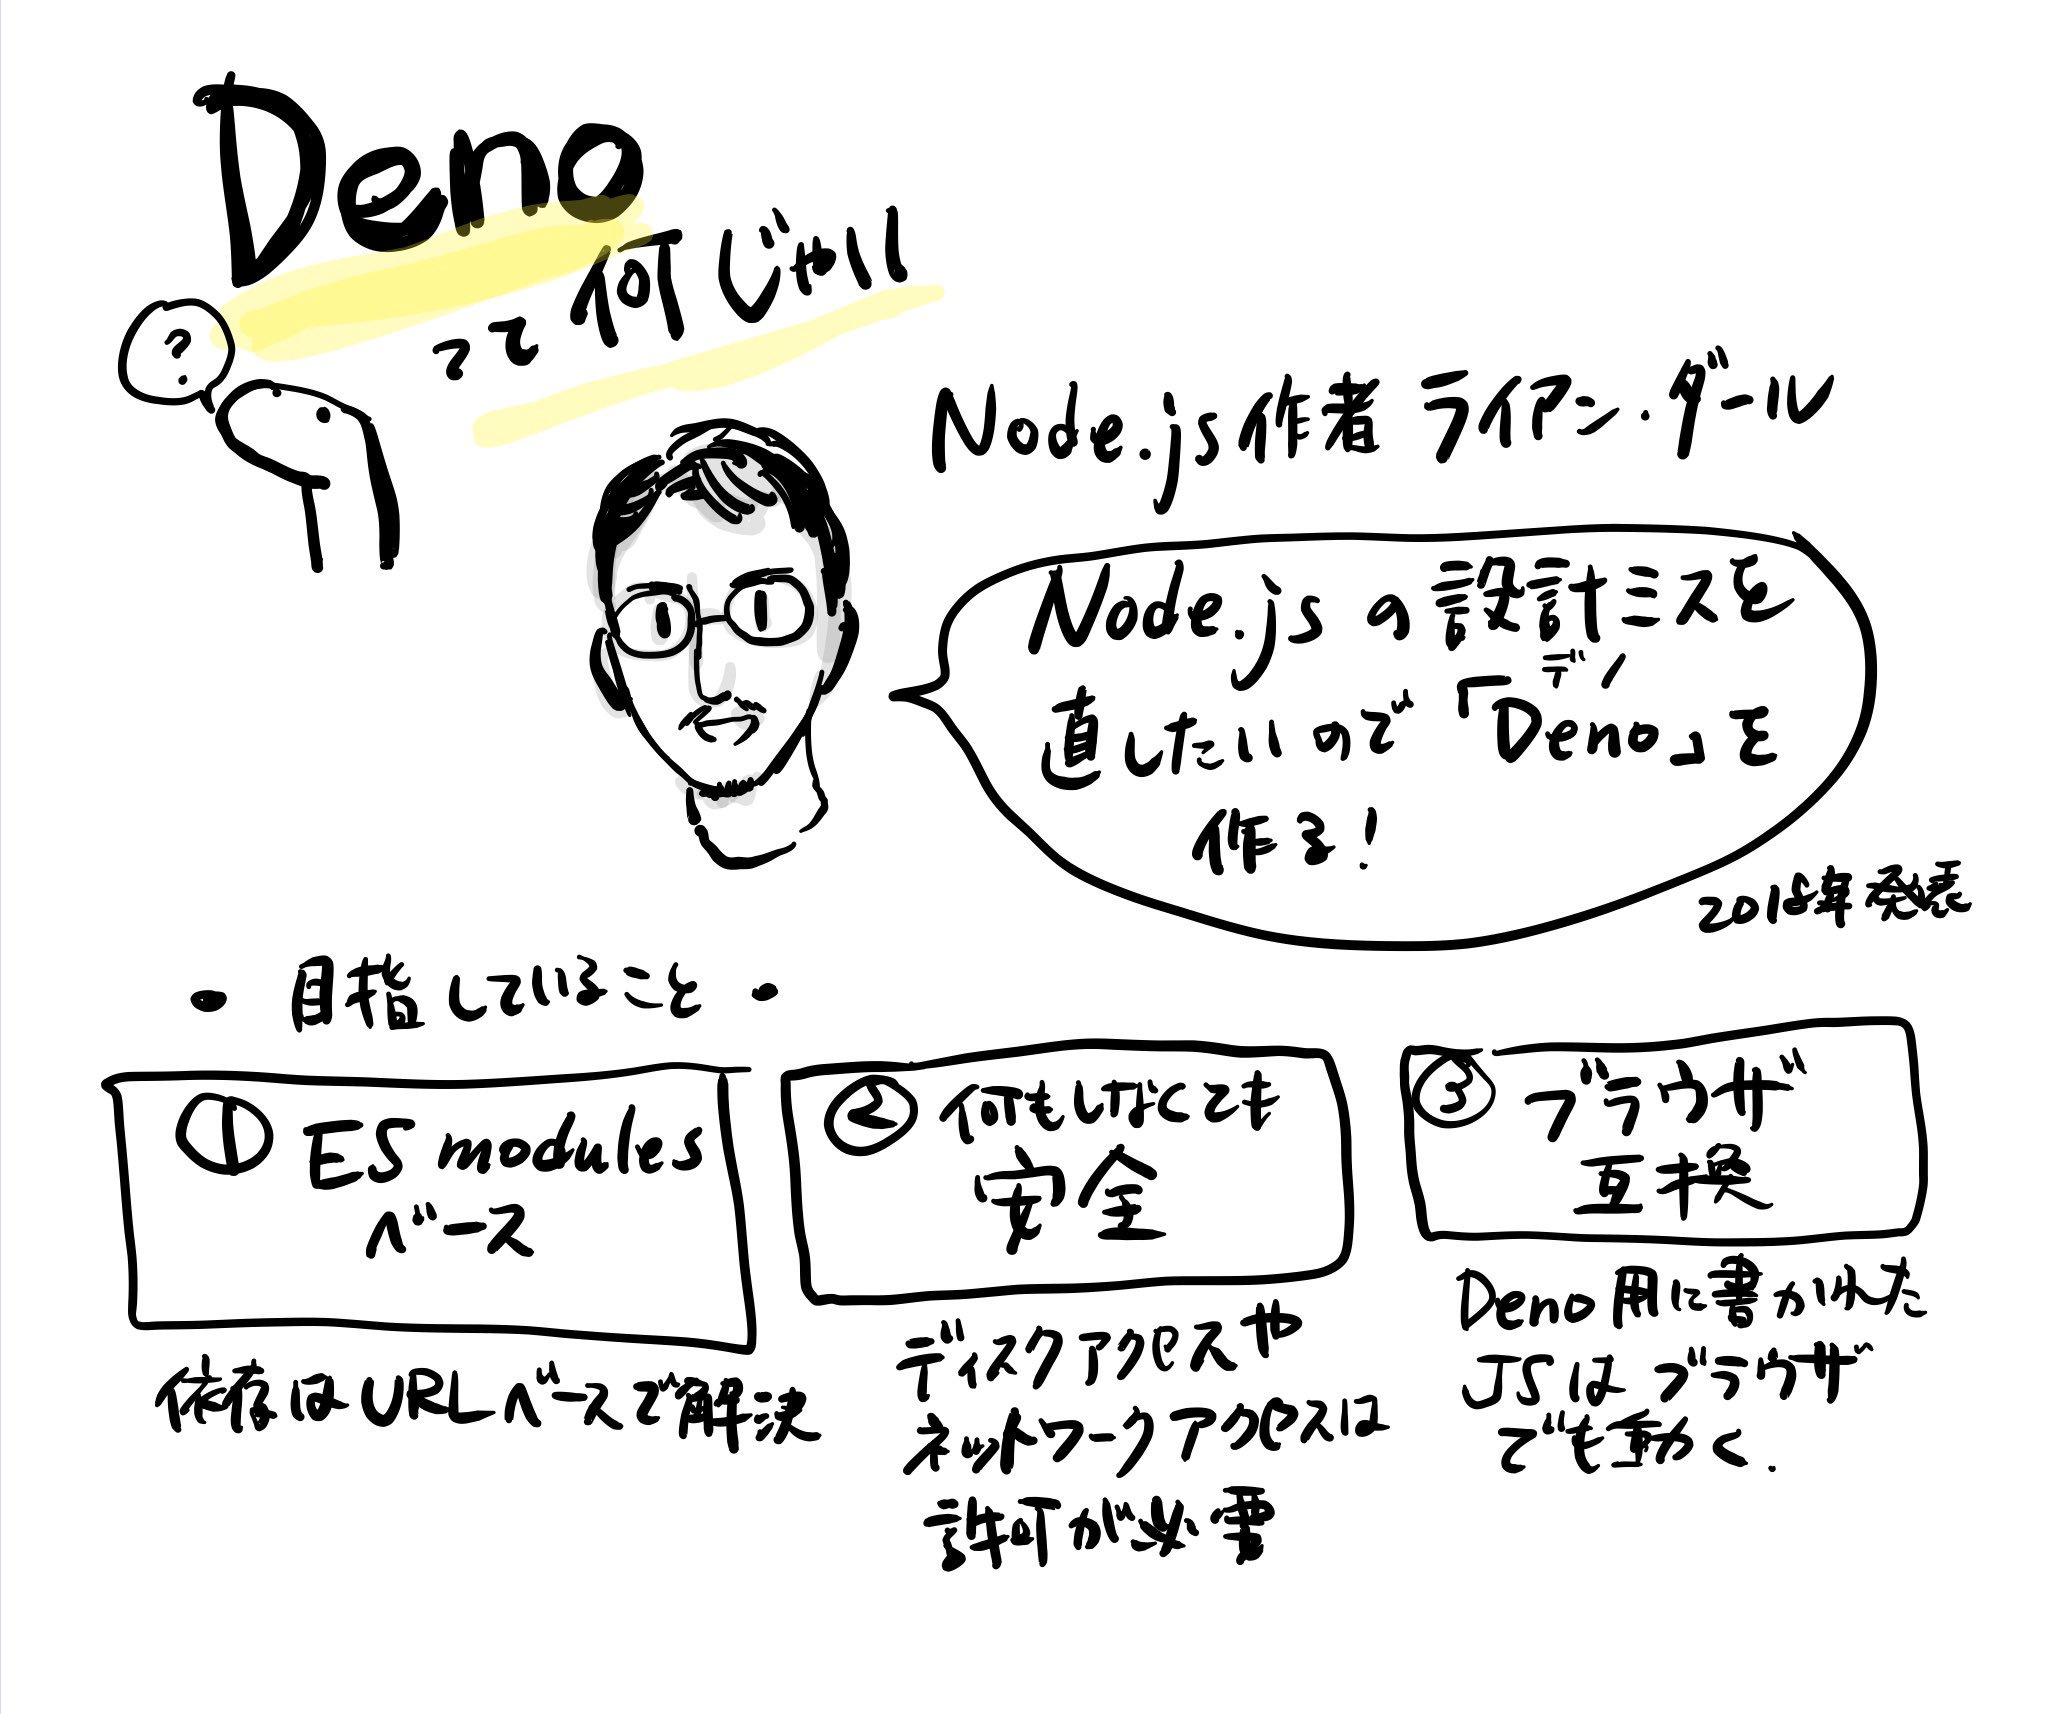 Deno
って何じゃい
?
Node.js作者 ライアン・ダール
Node.jsの設計ミスを
デノ
直したいので「Deno」を
作る!
2018年発表
・目指していること・
① ES modules
ベース
依存はURLベースで解決
② 何もしなくても
安全
ディスクアクセスや
ネットワークアクセスは
許可が必要
③ ブラウザ
互換
Deno用に書かれた
JSはブラウザ
でも動く.